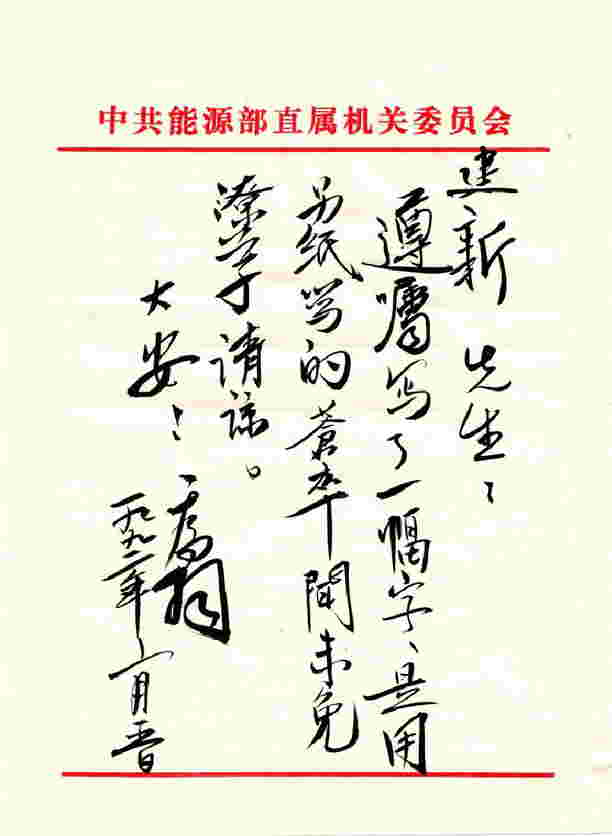 中共能源部直属机关委员会
建新 先生：
遵嘱写了一幅字、是用
另纸写的 蒼卒間未免
潦草请谅。
大安！
一九九二年 月